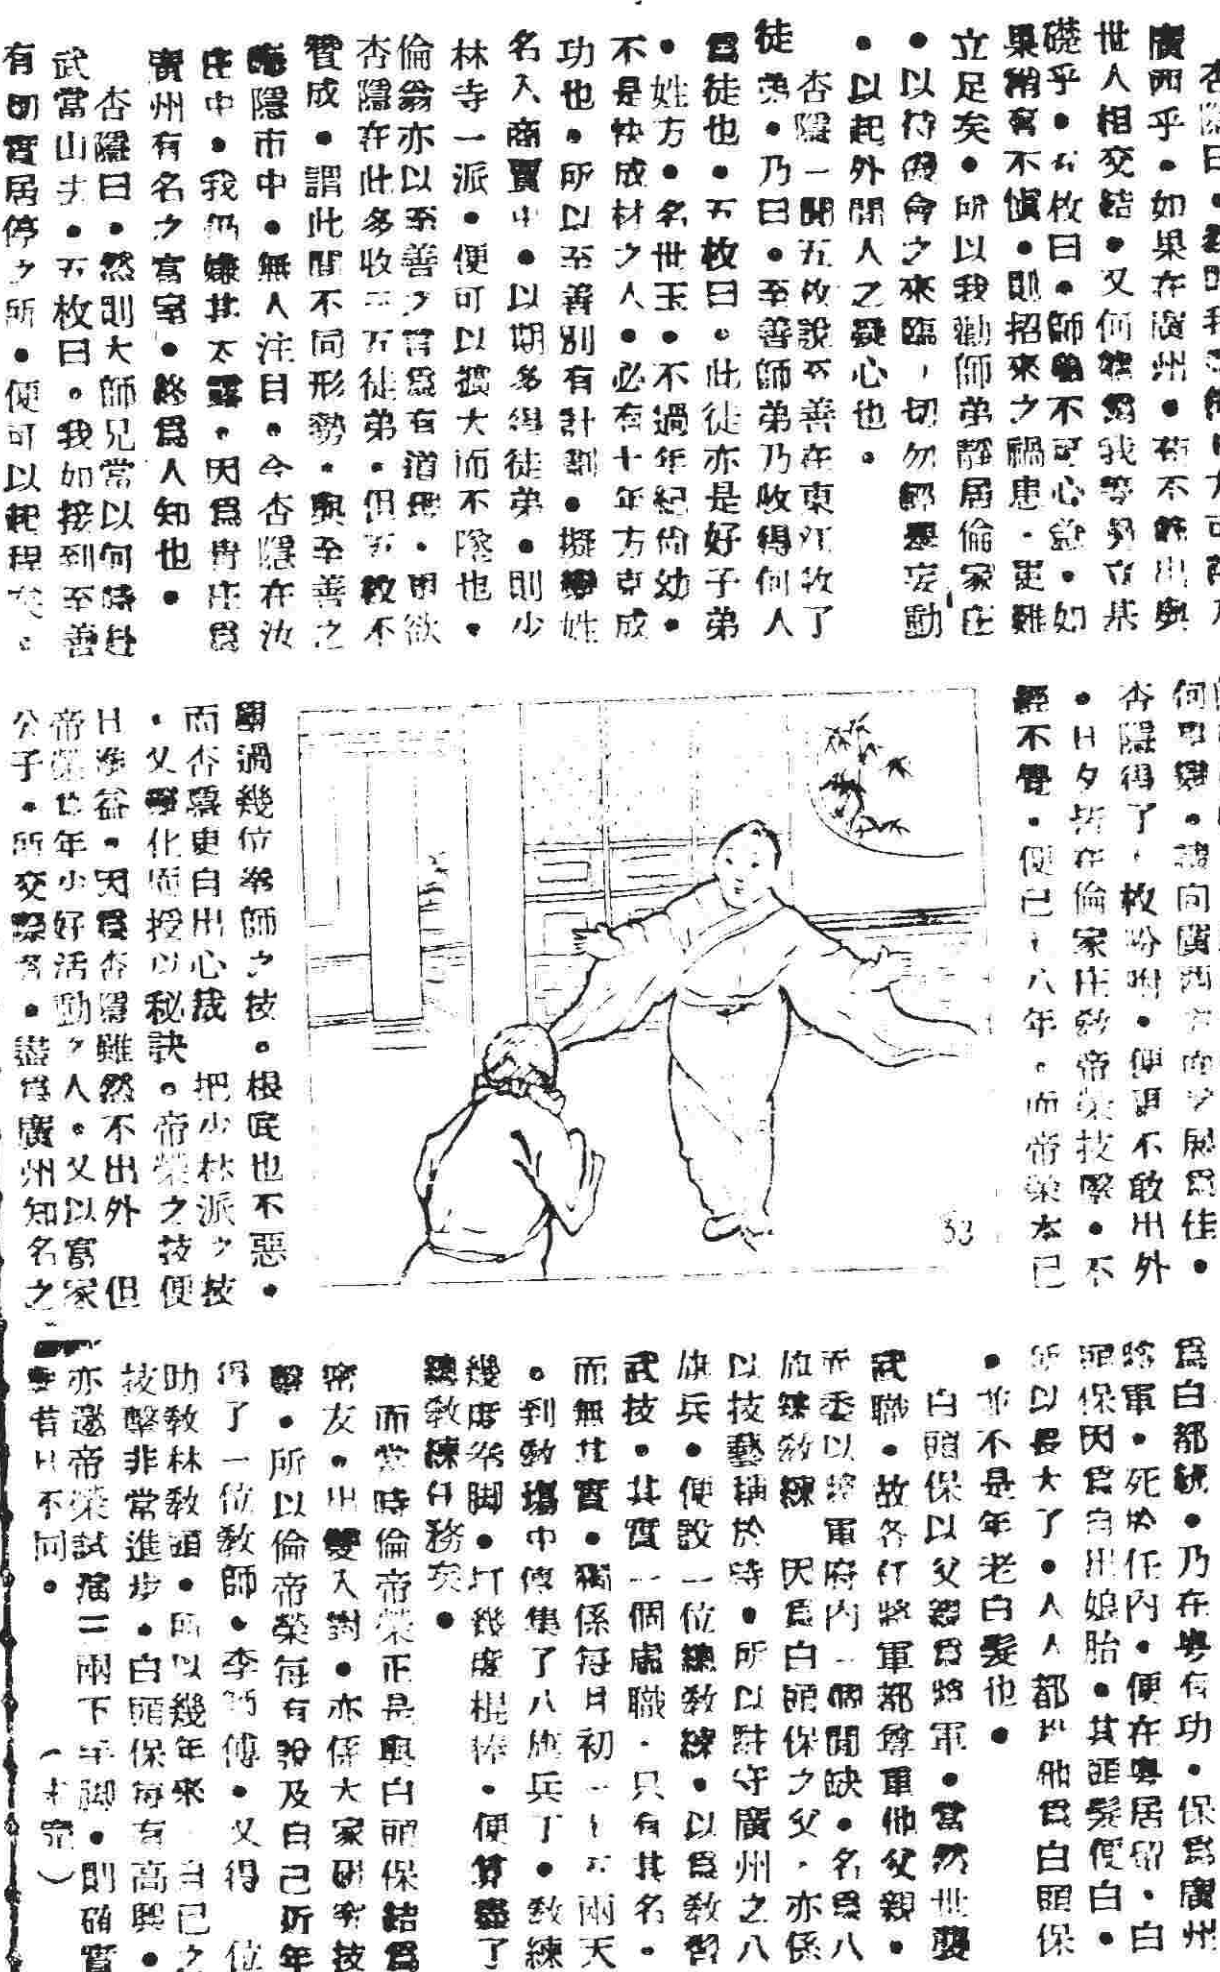 杏隱曰・
廣西乎・如果在廣州・苟不能出與
世人相交結・又何能爲我等另立基
礎乎・五枚曰・師弟不可心急・如
果稍有不愼・則招來之禍患・更難
立足矣・所以我勸師弟靜居倫家庄
・以待機會之來臨，切勿輕舉妄動
・以起外間人之疑心也・
杏隱一聞五枚說至善在東江收了
徒弟・乃曰・至善師弟乃收得何人
爲徒也・五枚曰・此徒亦是好子弟
・姓方・名世玉・不過年紀尚幼・
不是快成材之人・必有十年方克成
功也・所以至善別有計劃・擬變姓
名入商賈中・以期多得徒弟・則少
林寺一派・便可以擴大而不墜也・
倫翁亦以至善之言爲有道理・即欲
杏隱在此多收三五徒弟・但五枚不
贊成・謂此間不同形勢・與至善之
隱市中・無人注目・今杏隱在汝
庄中・我仍嫌其太露・因爲貴庄爲
廣州有名之富室・終爲人知也・
杏隱曰・然則大師兄當以何時赴
武當山去・五枚曰。我如接到至善
有切實居停之所・便可以起程矣。
何可疑・向廣西方面發展爲佳・
杏隱得了五枚吩咐・便更不敢出外
・日夕皆在倫家庄敎帝榮技擊・不
經不覺・便已七八年・而帝榮本已
學過幾位拳師之技。根底也不惡・
而杏隱更自出心裁 把少林派之技
・變化而授以秘訣。帝榮之技便
日漸益・因爲杏隱雖然不出外 但
帝榮年少好活動之人・又以富家
公子・所交際者・盡爲廣州知名之
33
爲白都統・乃在粤有功・保爲廣州
將軍・死於任內・便在粤居留・白
頭保因爲自出娘胎・其頭髮便白・
所以長大了・人人都叫他爲白頭保
・並不是年老白髮也・
白頭保以父親爲將軍・當然世襲
武職・故各任將軍都尊重他父親・
而委以將軍府內一個閒缺・名爲八
旗練敎練 因爲白頭保之父・亦係
以技藝稱於時・所以駐守廣州之八
旗兵・便設一位總敎練・以爲敎習
武技・其實一個虛職・只有其名・
而無其實・獨係每月初一十五兩天
・到敎塲中傳集了八旗兵丁・敎練
幾度拳脚・打幾度棍棒・便算盡了
總敎練任務矣・
而當時倫帝榮正是與白頭保結爲
密友・出雙入對・亦係大家研究技
擊・所以倫帝榮每有說及自己近年
得了一位敎師・李師傅・又得一位
助敎林敎頭・所以幾年來 自己之
技擊非常進步・白頭保每有高興・
亦邀帝榮試演三兩下手脚・則確實
與昔日不同・ (未完)